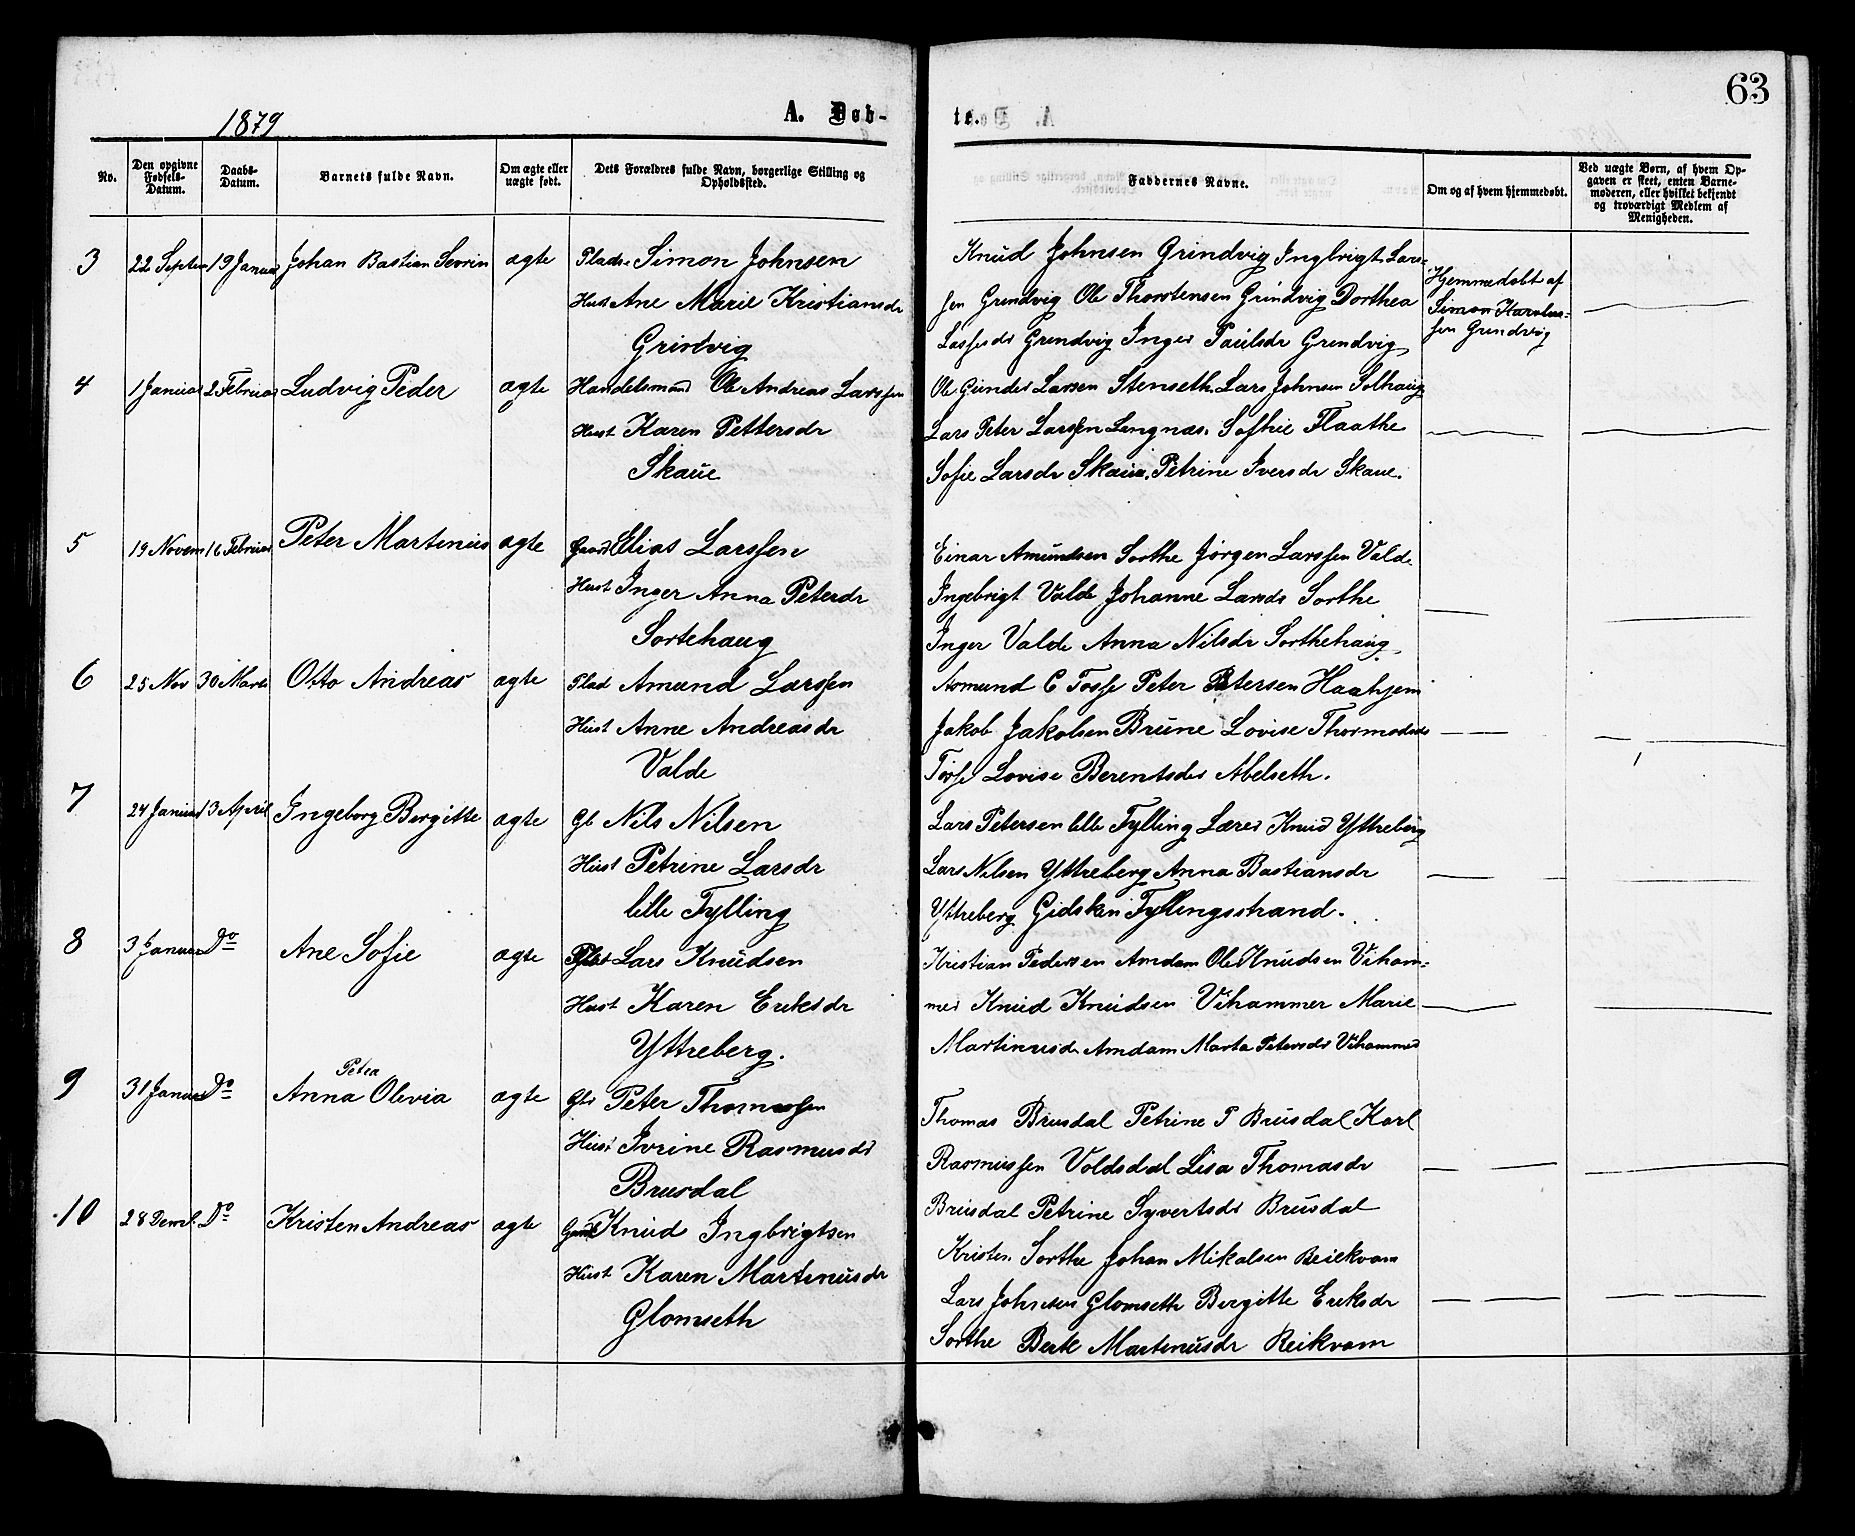 63
1879
A. Døb-
te.
No.
Den opgivne Fødsels-Datum.
Daabs-Datum.
Barnets fulde Navn.
Om ægte eller uægte født.
Dets Forældres fulde Navn, borgerlige Stilling og Opholdssted.
Faddernes Navne.
Om og af hvem hjemmedøbt.
Ved uægte Børn, af hvem Opgaven er skeet, enten Barnemoderen, eller hvilket bekjendt og troværdigt Medlem af Menigheden.
3 22 Septem 19 Januar Johan Bastian Sevrin ægte Plads Simon Johnsen
Hust Ane Marie Kristiansdr
Grindvig
Knud Johnsen Grindvig Ingbrigt Lars-
sen Grindvig Ole Thorstensen Grindvig Dorthea
Lassesdr Grindvig Inger Paulsdr Grindvig
Hjemmedøbt af
Simon
sen Grindvig
4 1 Januar 2 Februar Ludvig Peder ægte Handelsmand Ole Andreas Larssen
Hust Karen Pettersdr
Skaue
Ole Gunder Larsen Stenseth. Lars Johnsen Solhaug
Lars Peter Larssen Langnæs. Sofhie Flaathe
Sofie Larsdr Skaue. Petrine Iversdr Skaue.
5 19 Novem 16 Februar Peter Martinus ægte Gaard Elias Larssen
Hust Inger Anna Petersdr
Sortehaug
Einar Amundsen Sorthe Jørgen Larssen Valde
Ingebrigt Valde Johanne Larsdr Sorthe
Inger Valde Anna Nilsdr Sorthehaug
6 25 Nov 30 Marts Otto Andreas ægte Plad Amund Larssen
Hust Anne Andreasdr
Valde
Asmund C Tosse Peter Petersen Haahjem
Jakob Jakobsen Brune Lovise Thormodsdr
Tosse Lovise Berentsdr Abelseth.
7 24 Januar 13 April Ingeborg Bergitte ægte Gb Nils Nilsen
Hust Petrine Larsdr
lille Fylling
Lars Petersen lille Fylling Lærer Knud Yttreberg
Lars Nilsen Yttreberg Anna Bastiansdr
Yttreberg Gidsken Fyllingsstrand.
8 3 Januar Do Ane Sofie ægte Lars Knudsen
Hust Karen Eriksdr
Yttreberg.
Kristian Pedersen Amdam Ole Knudsen Viham-
mer Knud Knudsen Vihammer Marie
Martinusdr Amdam Marta Petersdr Vihammer
9 31 Januar Do Anna Petra Olivia ægte Gbr Peter Thomassen
Hust Ivrine Rasmusdr
Brusdal
Thomas Brusdal Petrine P Brusdal Karl
Rasmussen Voldsdal Lisa Thomasdr
Brusdal Petrine Syvertsdr Brusdal
10 28 Deml. Do Kristen Andreas ægte Gaard Knud Ingbrigtsen
Hust Karen Martinusdr
Glomseth
Kristen Sorthe Johan Mikalsen Reiekvam
Lars Johnsen Glomseth Bergitte Eriksdr
Sorthe Berte Martinusdr Reikvam